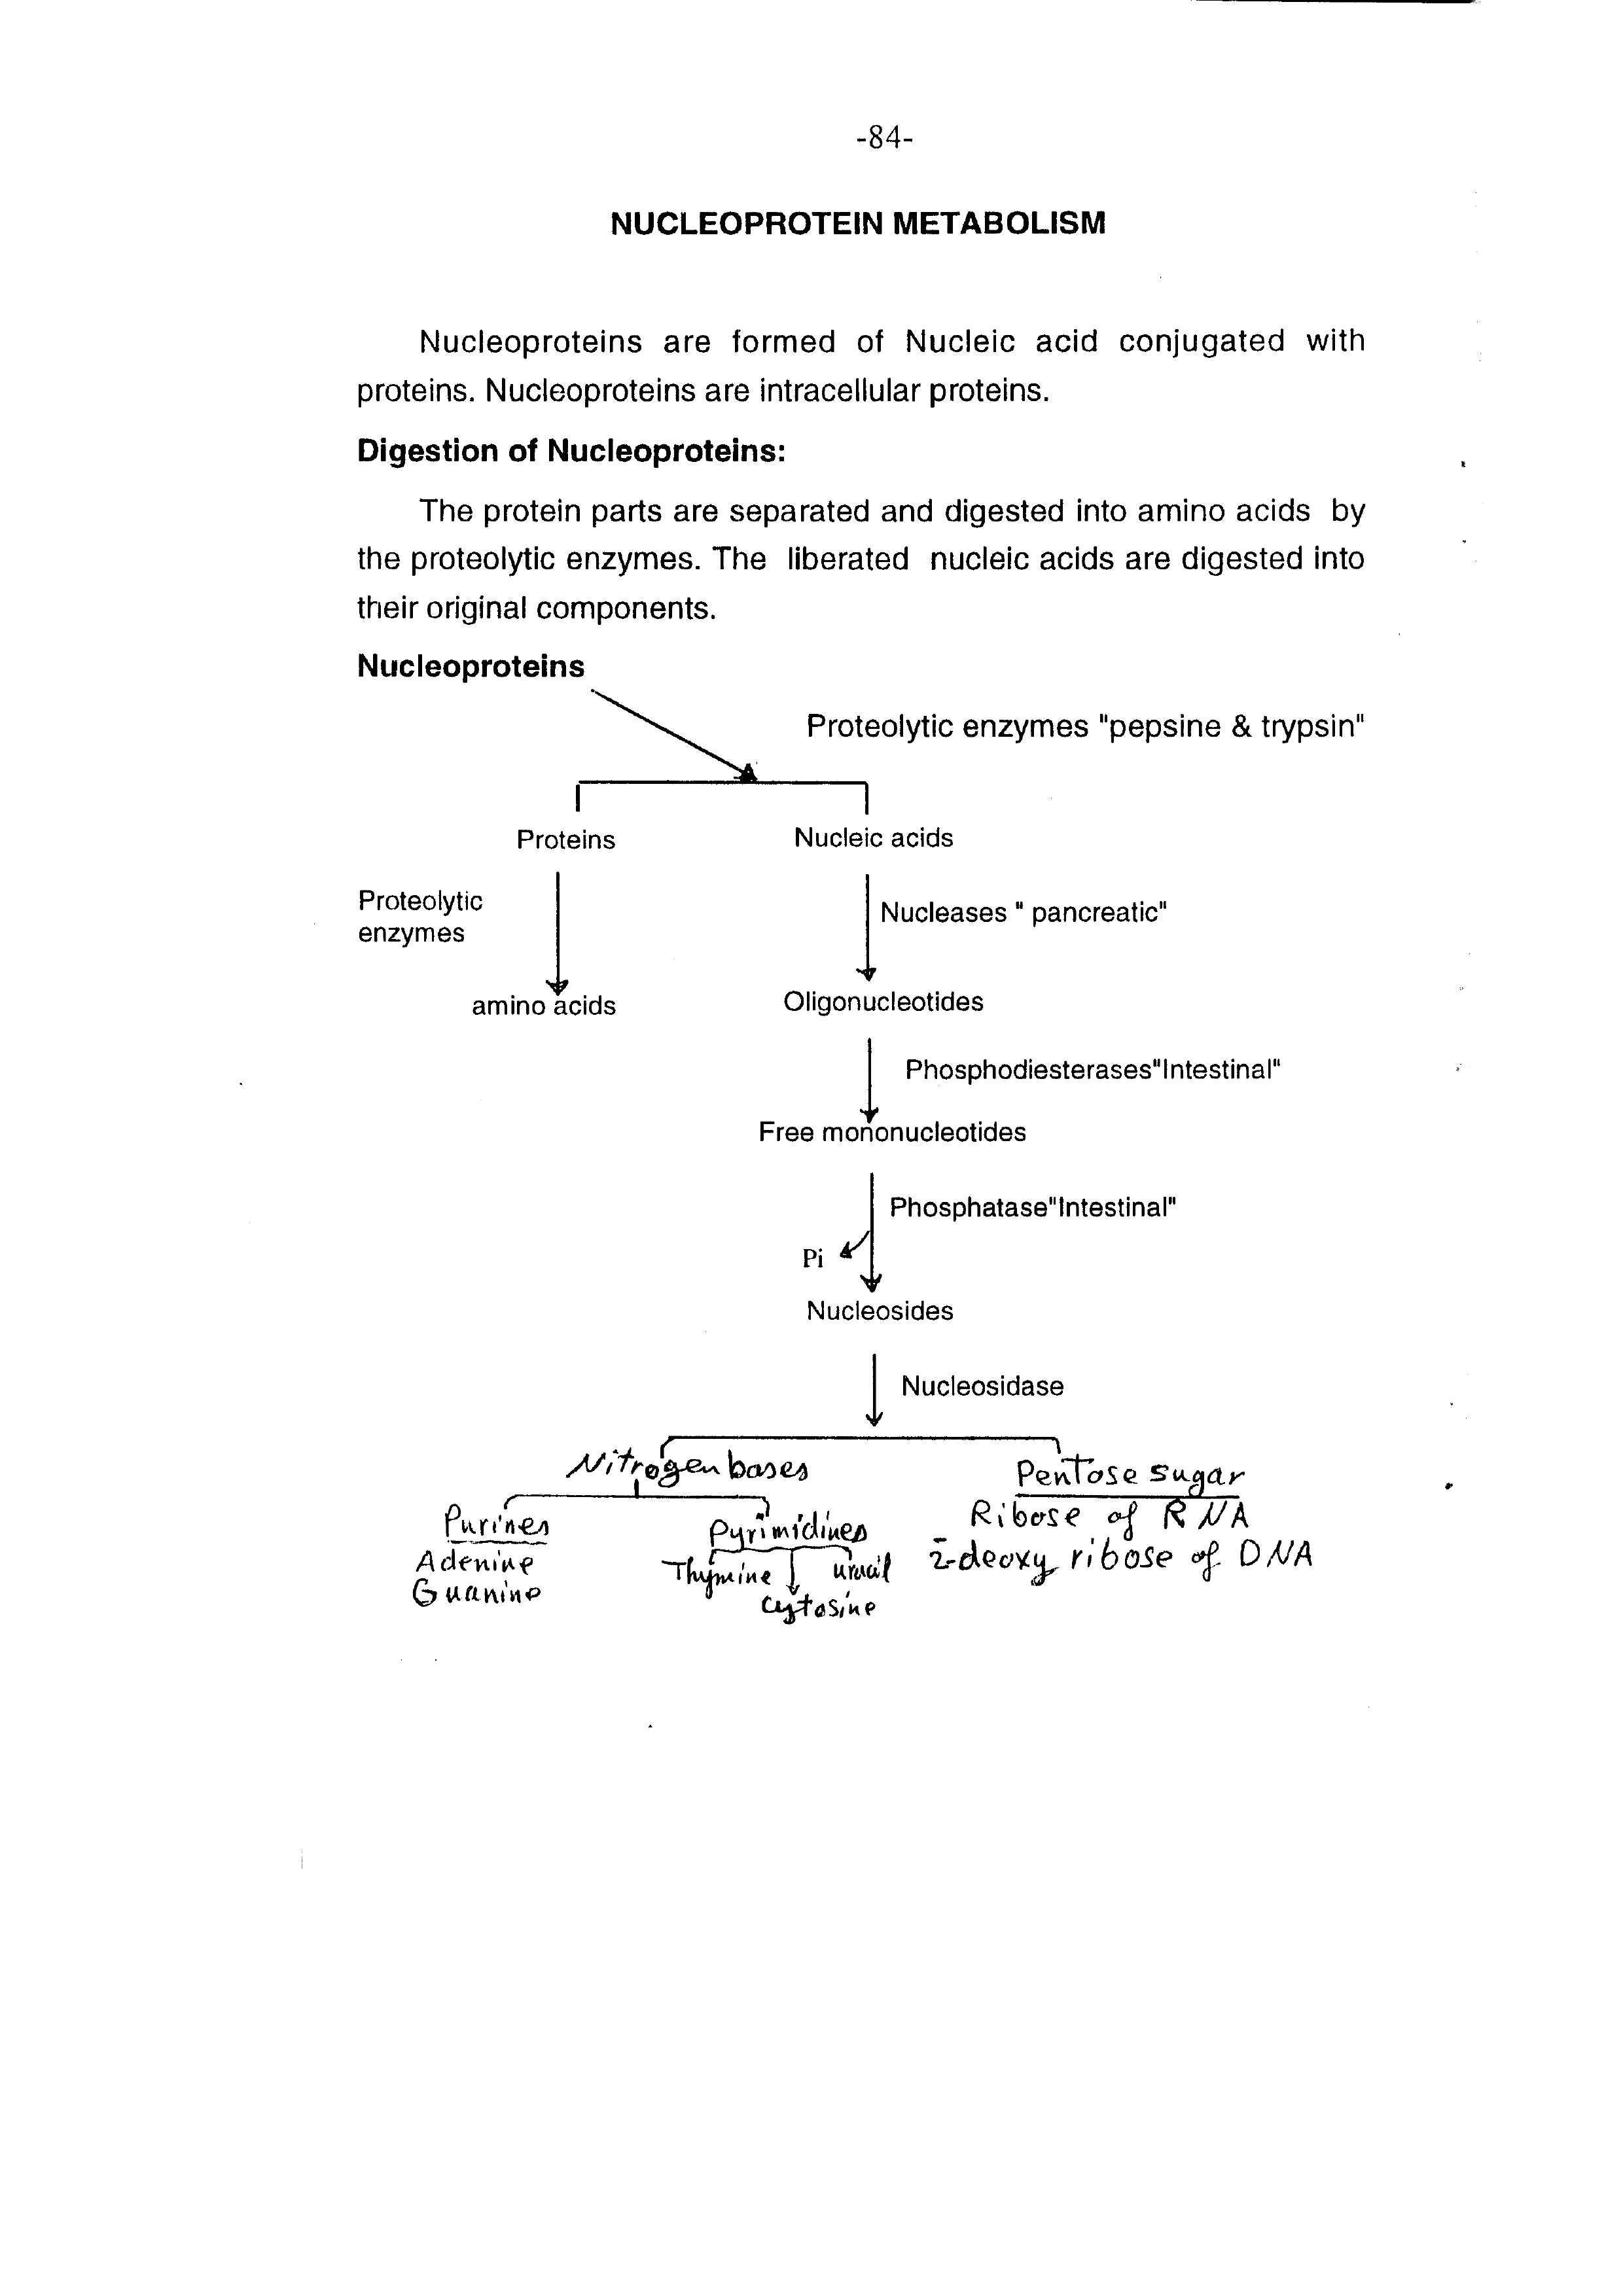 -84-
NUCLEOPROTEIN METABOLISM
Nucleoproteins are formed of Nucleic acid conjugated with
proteins. Nucleoproteins are intracellular proteins.
Digestion of Nucleoproteins:
The protein parts are separated and digested into amino acids by
the proteolytic enzymes. The liberated nucleic acids are digested into
their original components.
Nucleoproteins
Proteolytic enzymes "pepsine & trypsin"
Proteins Nucleic acids
Proteolytic
enzymes
Nucleases " pancreatic"
amino acids Oligonucleotides
Phosphodiesterases"Intestinal"
Free mononucleotides
Phosphatase"Intestinal"
Pi
Nucleosides
Nucleosidase
Nitrogen bases Pentose sugar
Purines Pyrimidines Ribose of RNA
Adenine Thymine uracil 2-deoxy ribose of DNA
Guanine cytosine